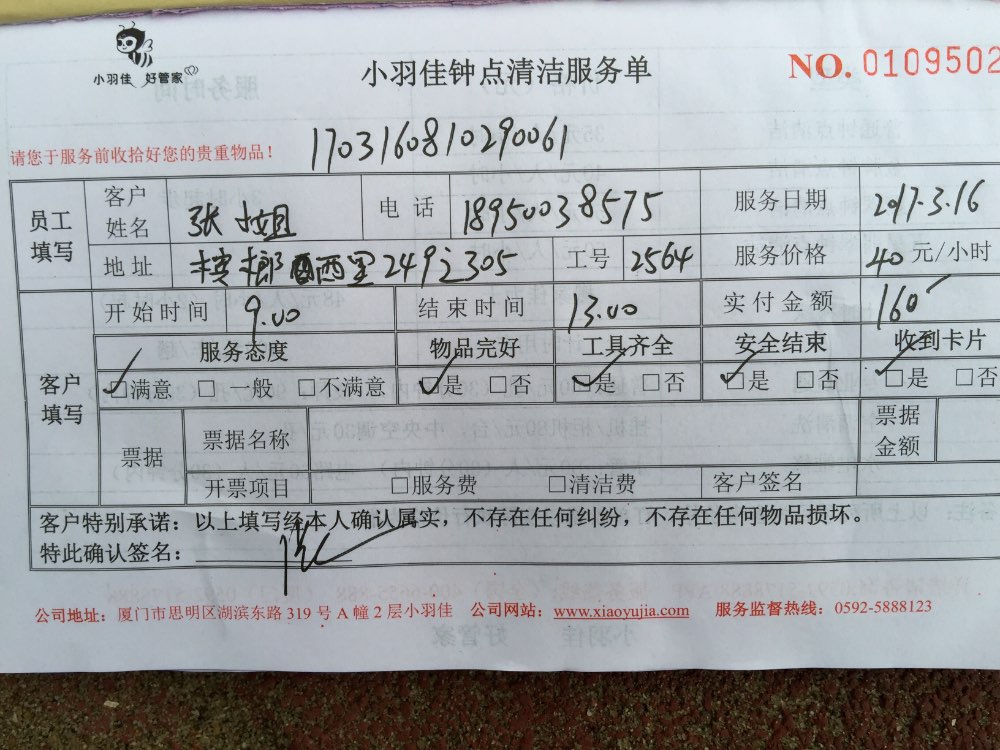 小羽佳 好管家
小羽佳钟点清洁服务单
NO. 0109502
1703160810290061
请您于服务前收拾好您的贵重物品！
员工填写 客户姓名 张小姐 电话 18950038575 服务日期 2017.3.16
地址 槟榔西里249之305 工号 2564 服务价格 40元/小时
客户填写 开始时间 9.00 结束时间 13.00 实付金额 160
服务态度 物品完好 工具齐全 安全结束 收到卡片
☑满意 □一般 □不满意 ☑是 □否 ☑是 □否 ☑是 □否 ☑是 □否
票据 票据名称 票据金额
开票项目 □服务费 □清洁费 客户签名
客户特别承诺：以上填写经本人确认属实，不存在任何纠纷，不存在任何物品损坏。
特此确认签名：
公司地址：厦门市思明区湖滨东路319号A幢2层小羽佳 公司网站：www.xiaoyujia.com 服务监督热线：0592-5888123